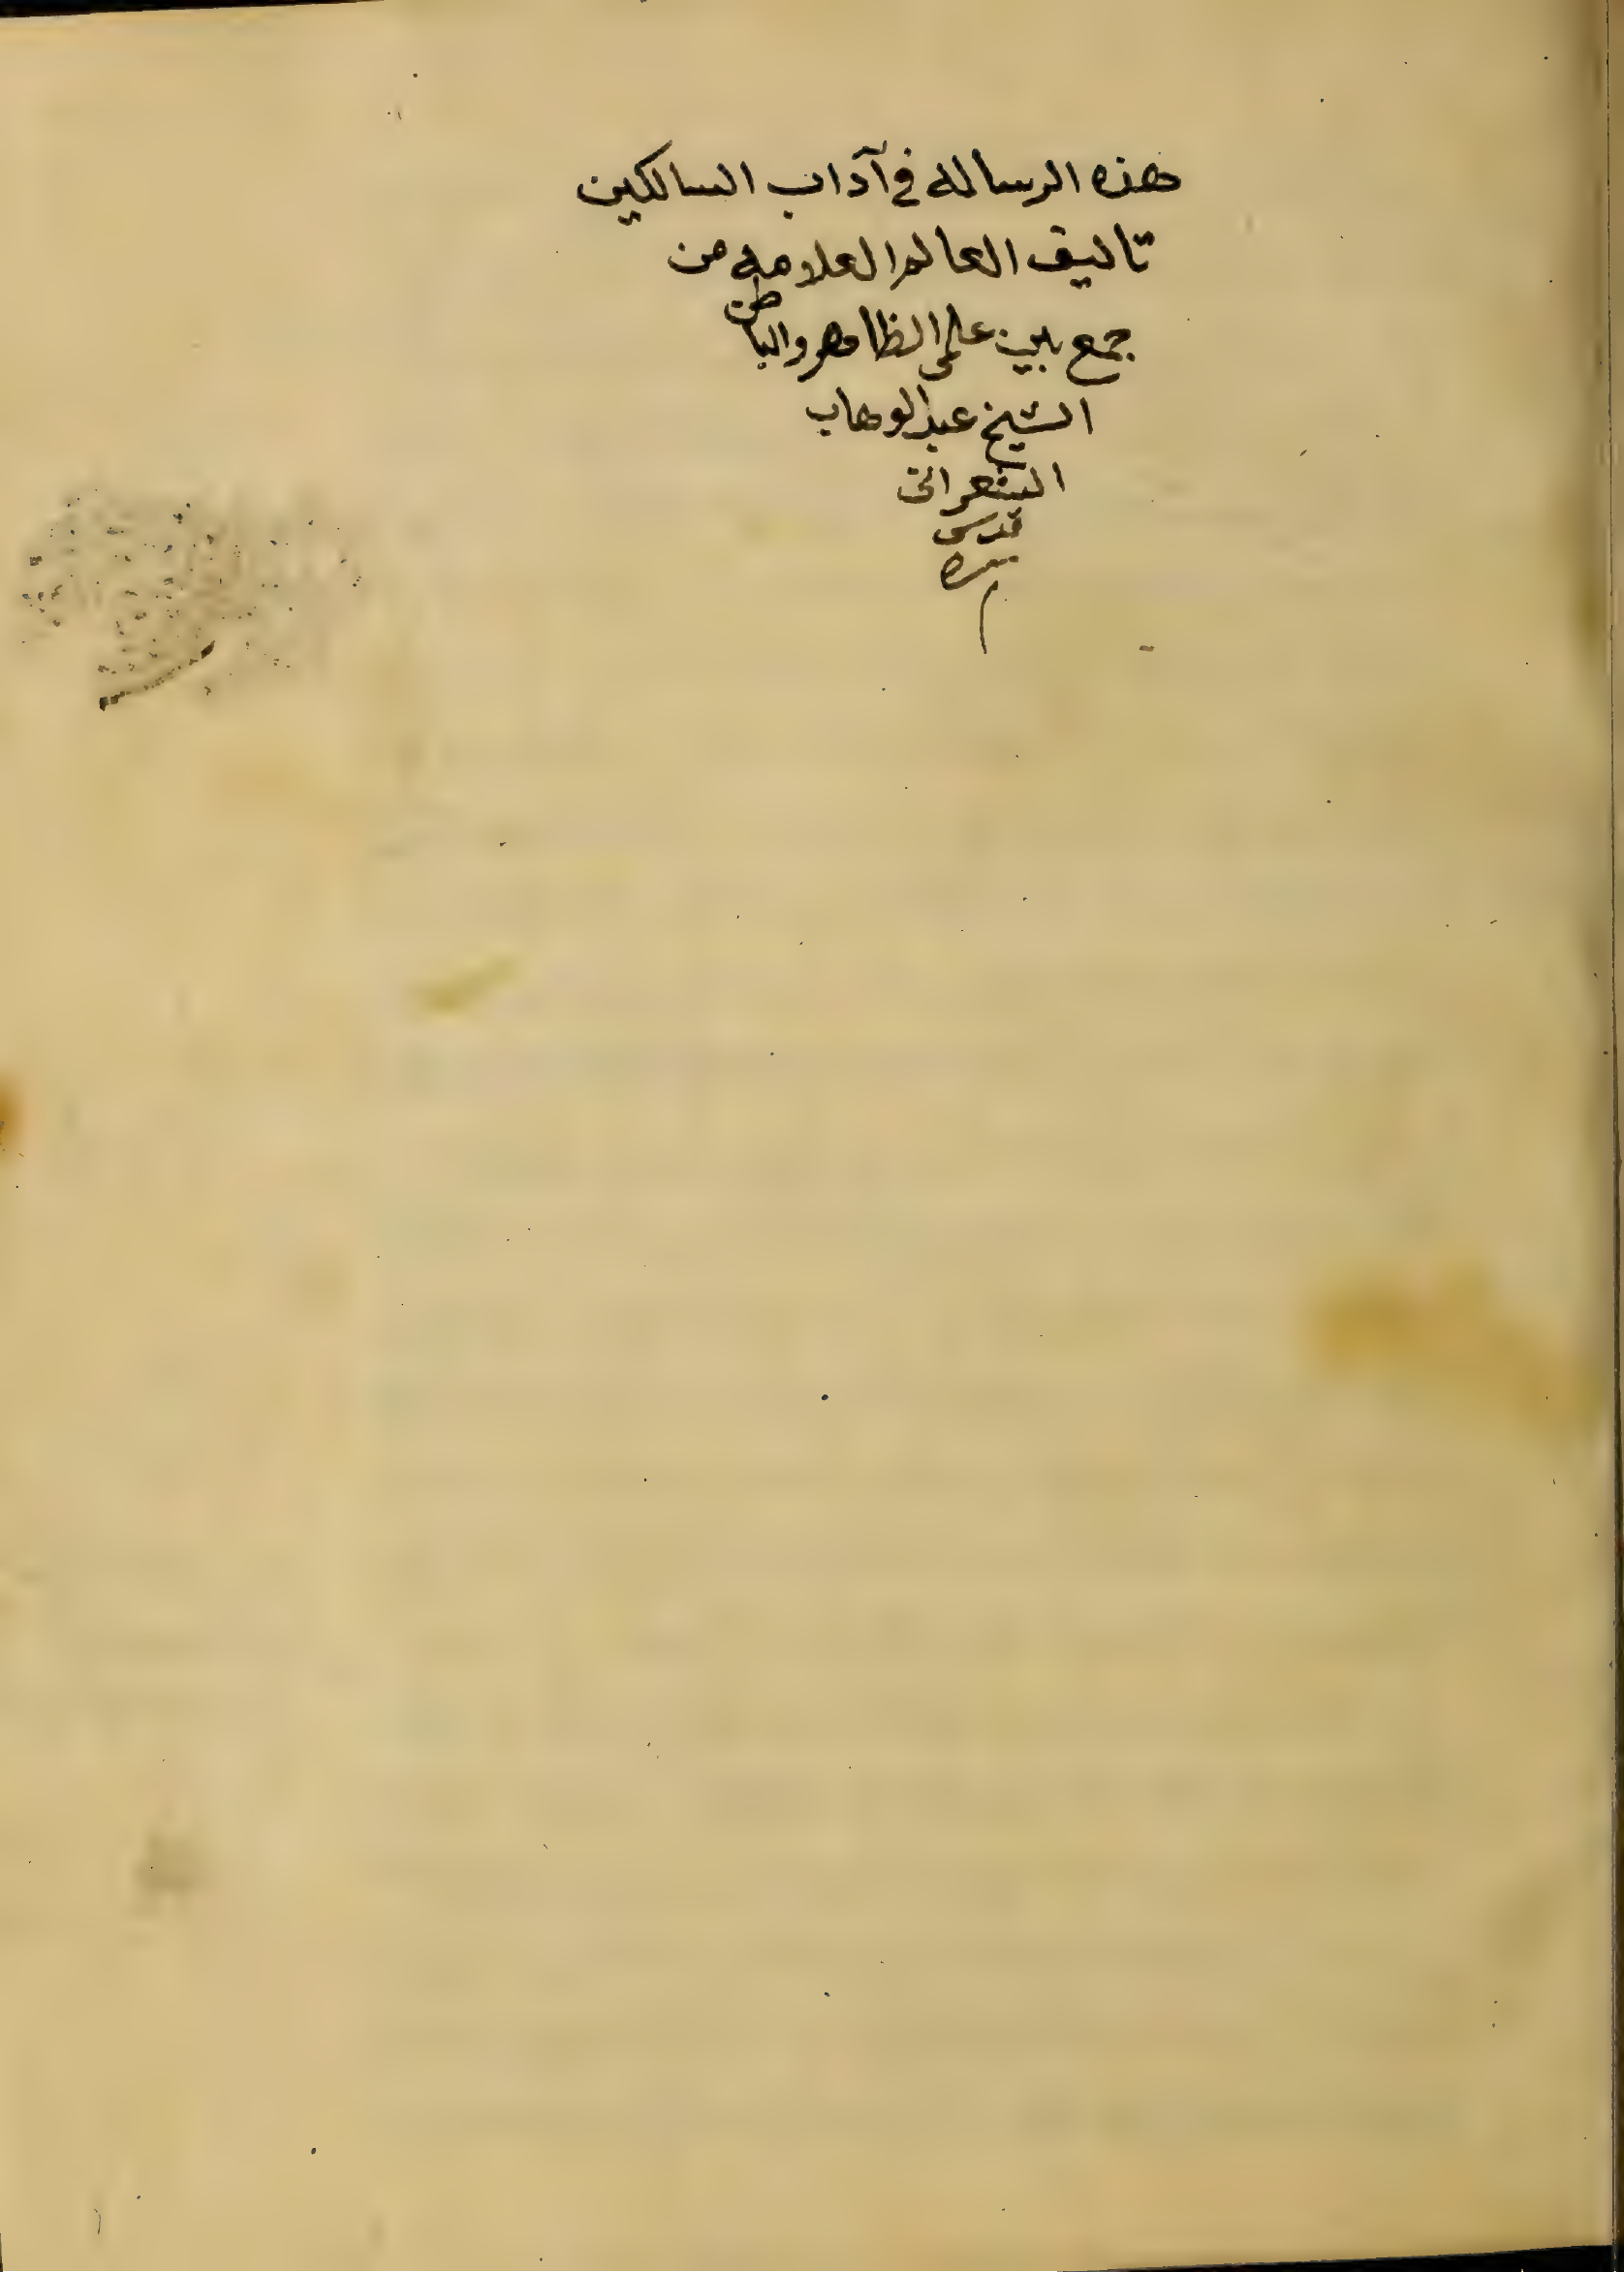 هذه الرساله في آداب السالكين
تاليف العالم العلامه من
جمع بين علمى الظاهر والباطن
الشيخ عبد الوهاب
الشعرانى
قدس
سره
م